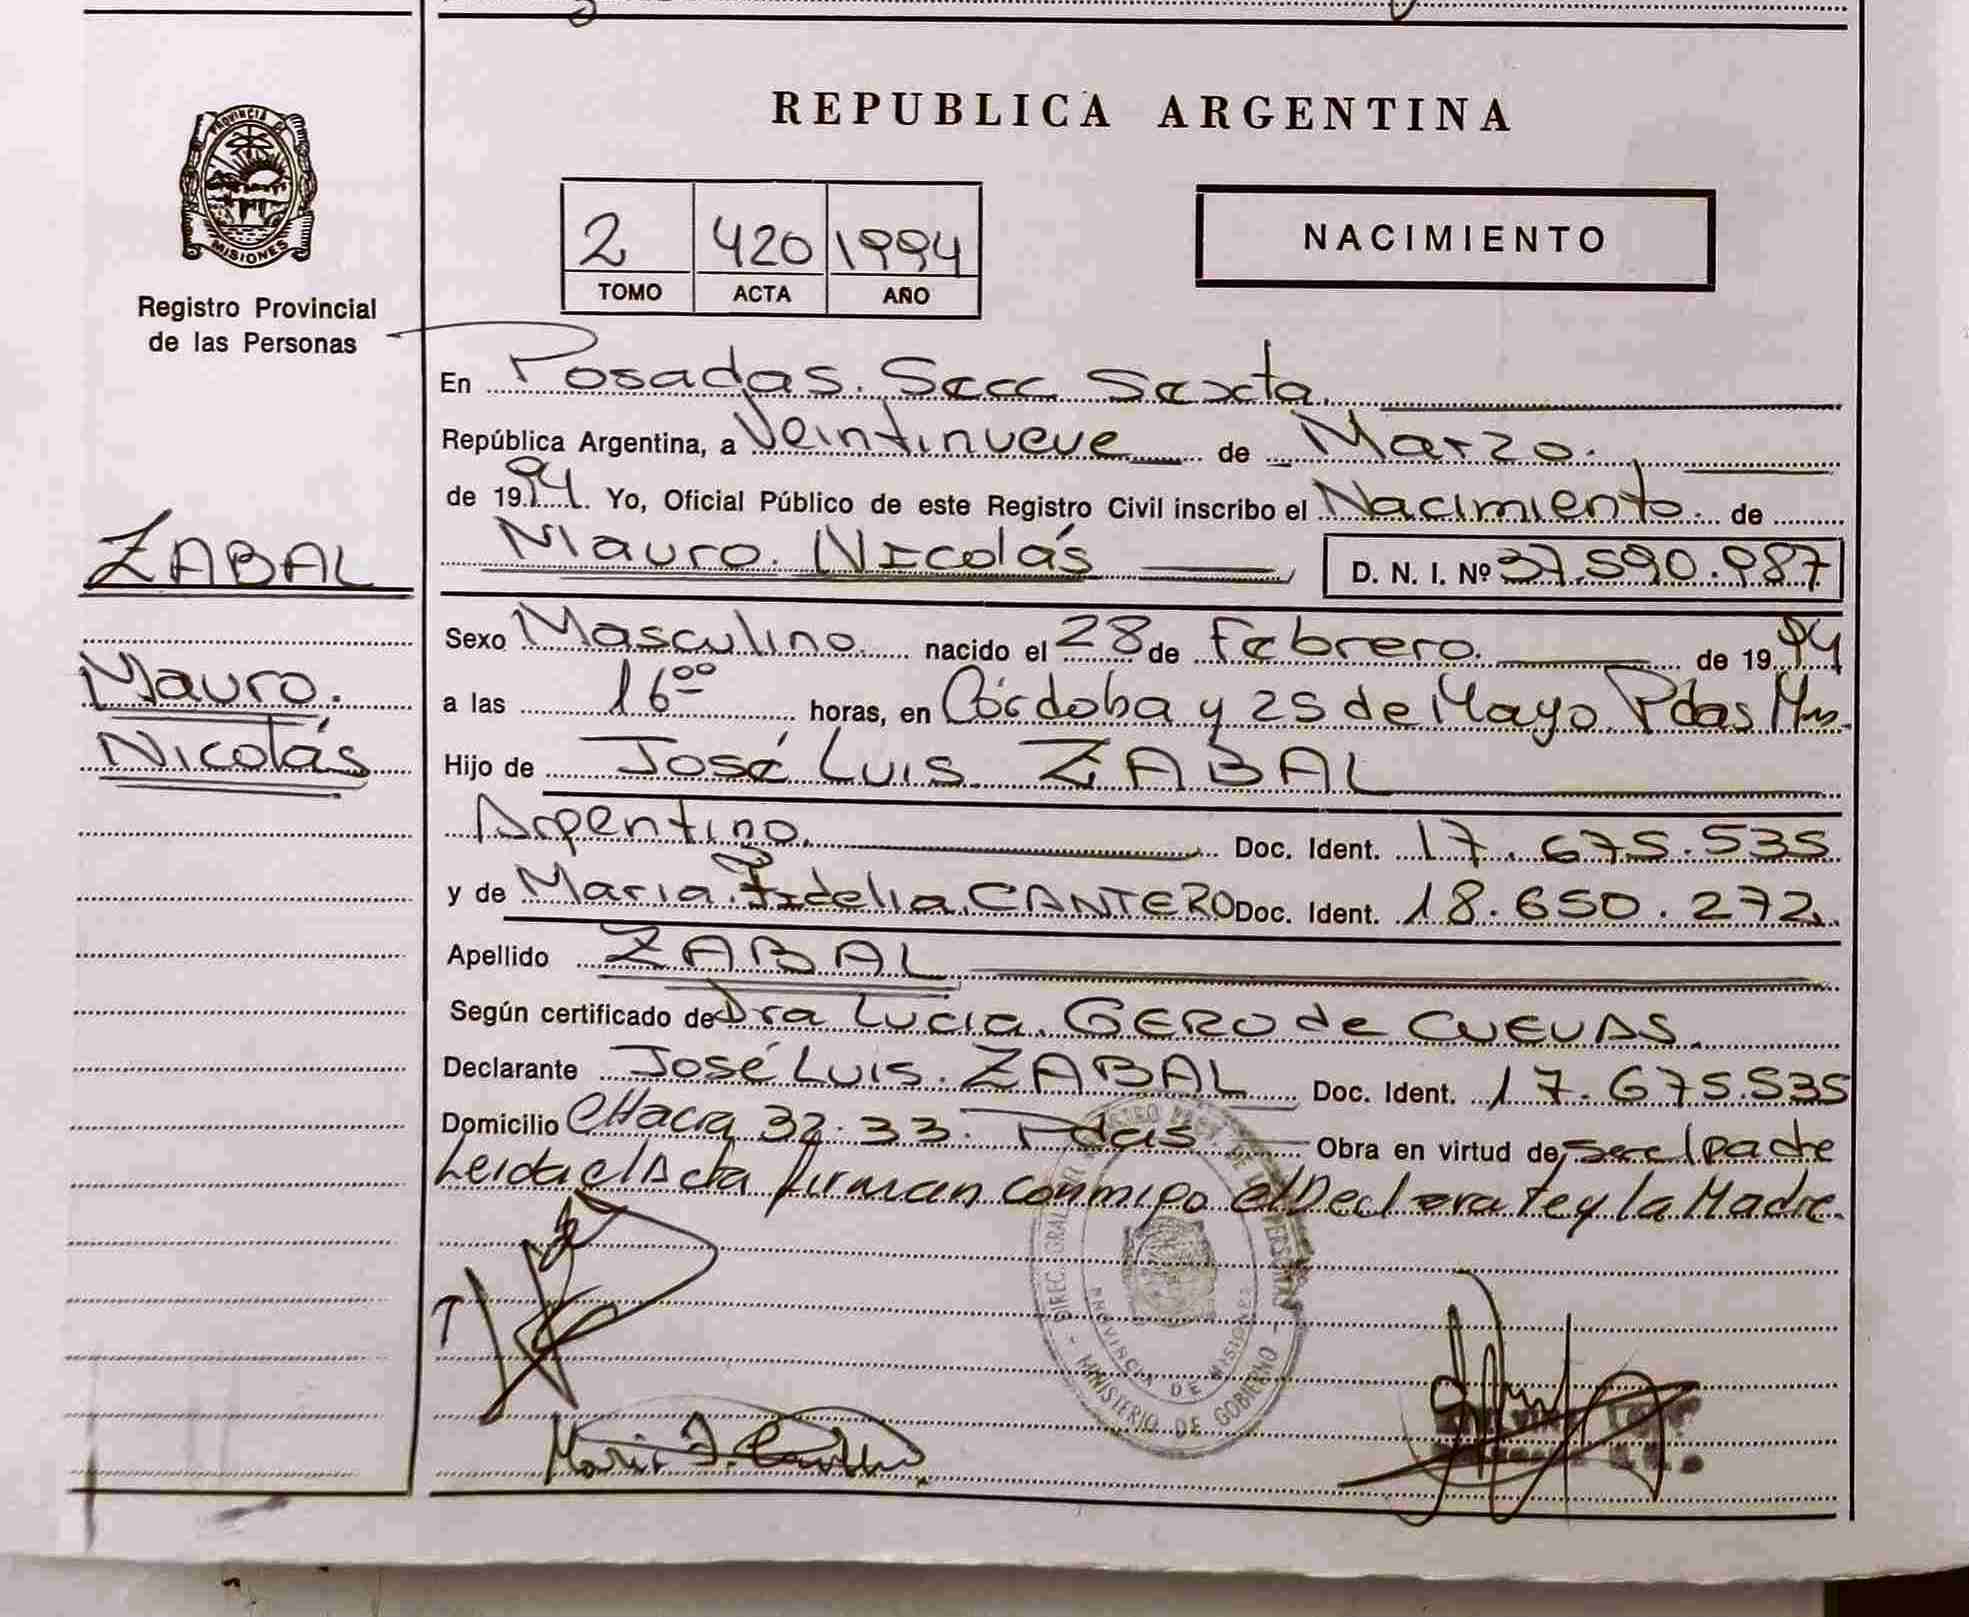 PROVINCIA DE
MISIONES
Registro Provincial
de las Personas
ZABAL
Mauro.
Nicolás
REPUBLICA ARGENTINA
2 420 1994
TOMO ACTA AÑO
NACIMIENTO
En Posadas. Secc Sexta.
República Argentina, a Veintinueve de Marzo.
de 1994. Yo, Oficial Público de este Registro Civil inscribo el Nacimiento. de
Mauro. Nicolás D. N. I. Nº 37.590.987
Sexo Masculino nacido el 28 de Febrero. de 1994
a las 16⁰⁰ horas, en Córdoba y 25 de Mayo Pdas. Mns.
Hijo de José Luis. ZABAL
Argentino. Doc. Ident. 17.675.535
y de Maria. Fidelia. CANTERO Doc. Ident. 18.650.272.
Apellido ZABAL
Según certificado de Dra Lucia. GERO de CUEVAS.
Declarante José Luis. ZABAL Doc. Ident. 17.675.535
Domicilio CHacra 32-33. Pdas Obra en virtud de ser el padre
Leida el Acta firman conmigo el Declarate y la Madre.
MINISTERIO DE GOBIERNO
PROVINCIA DE MISIONES